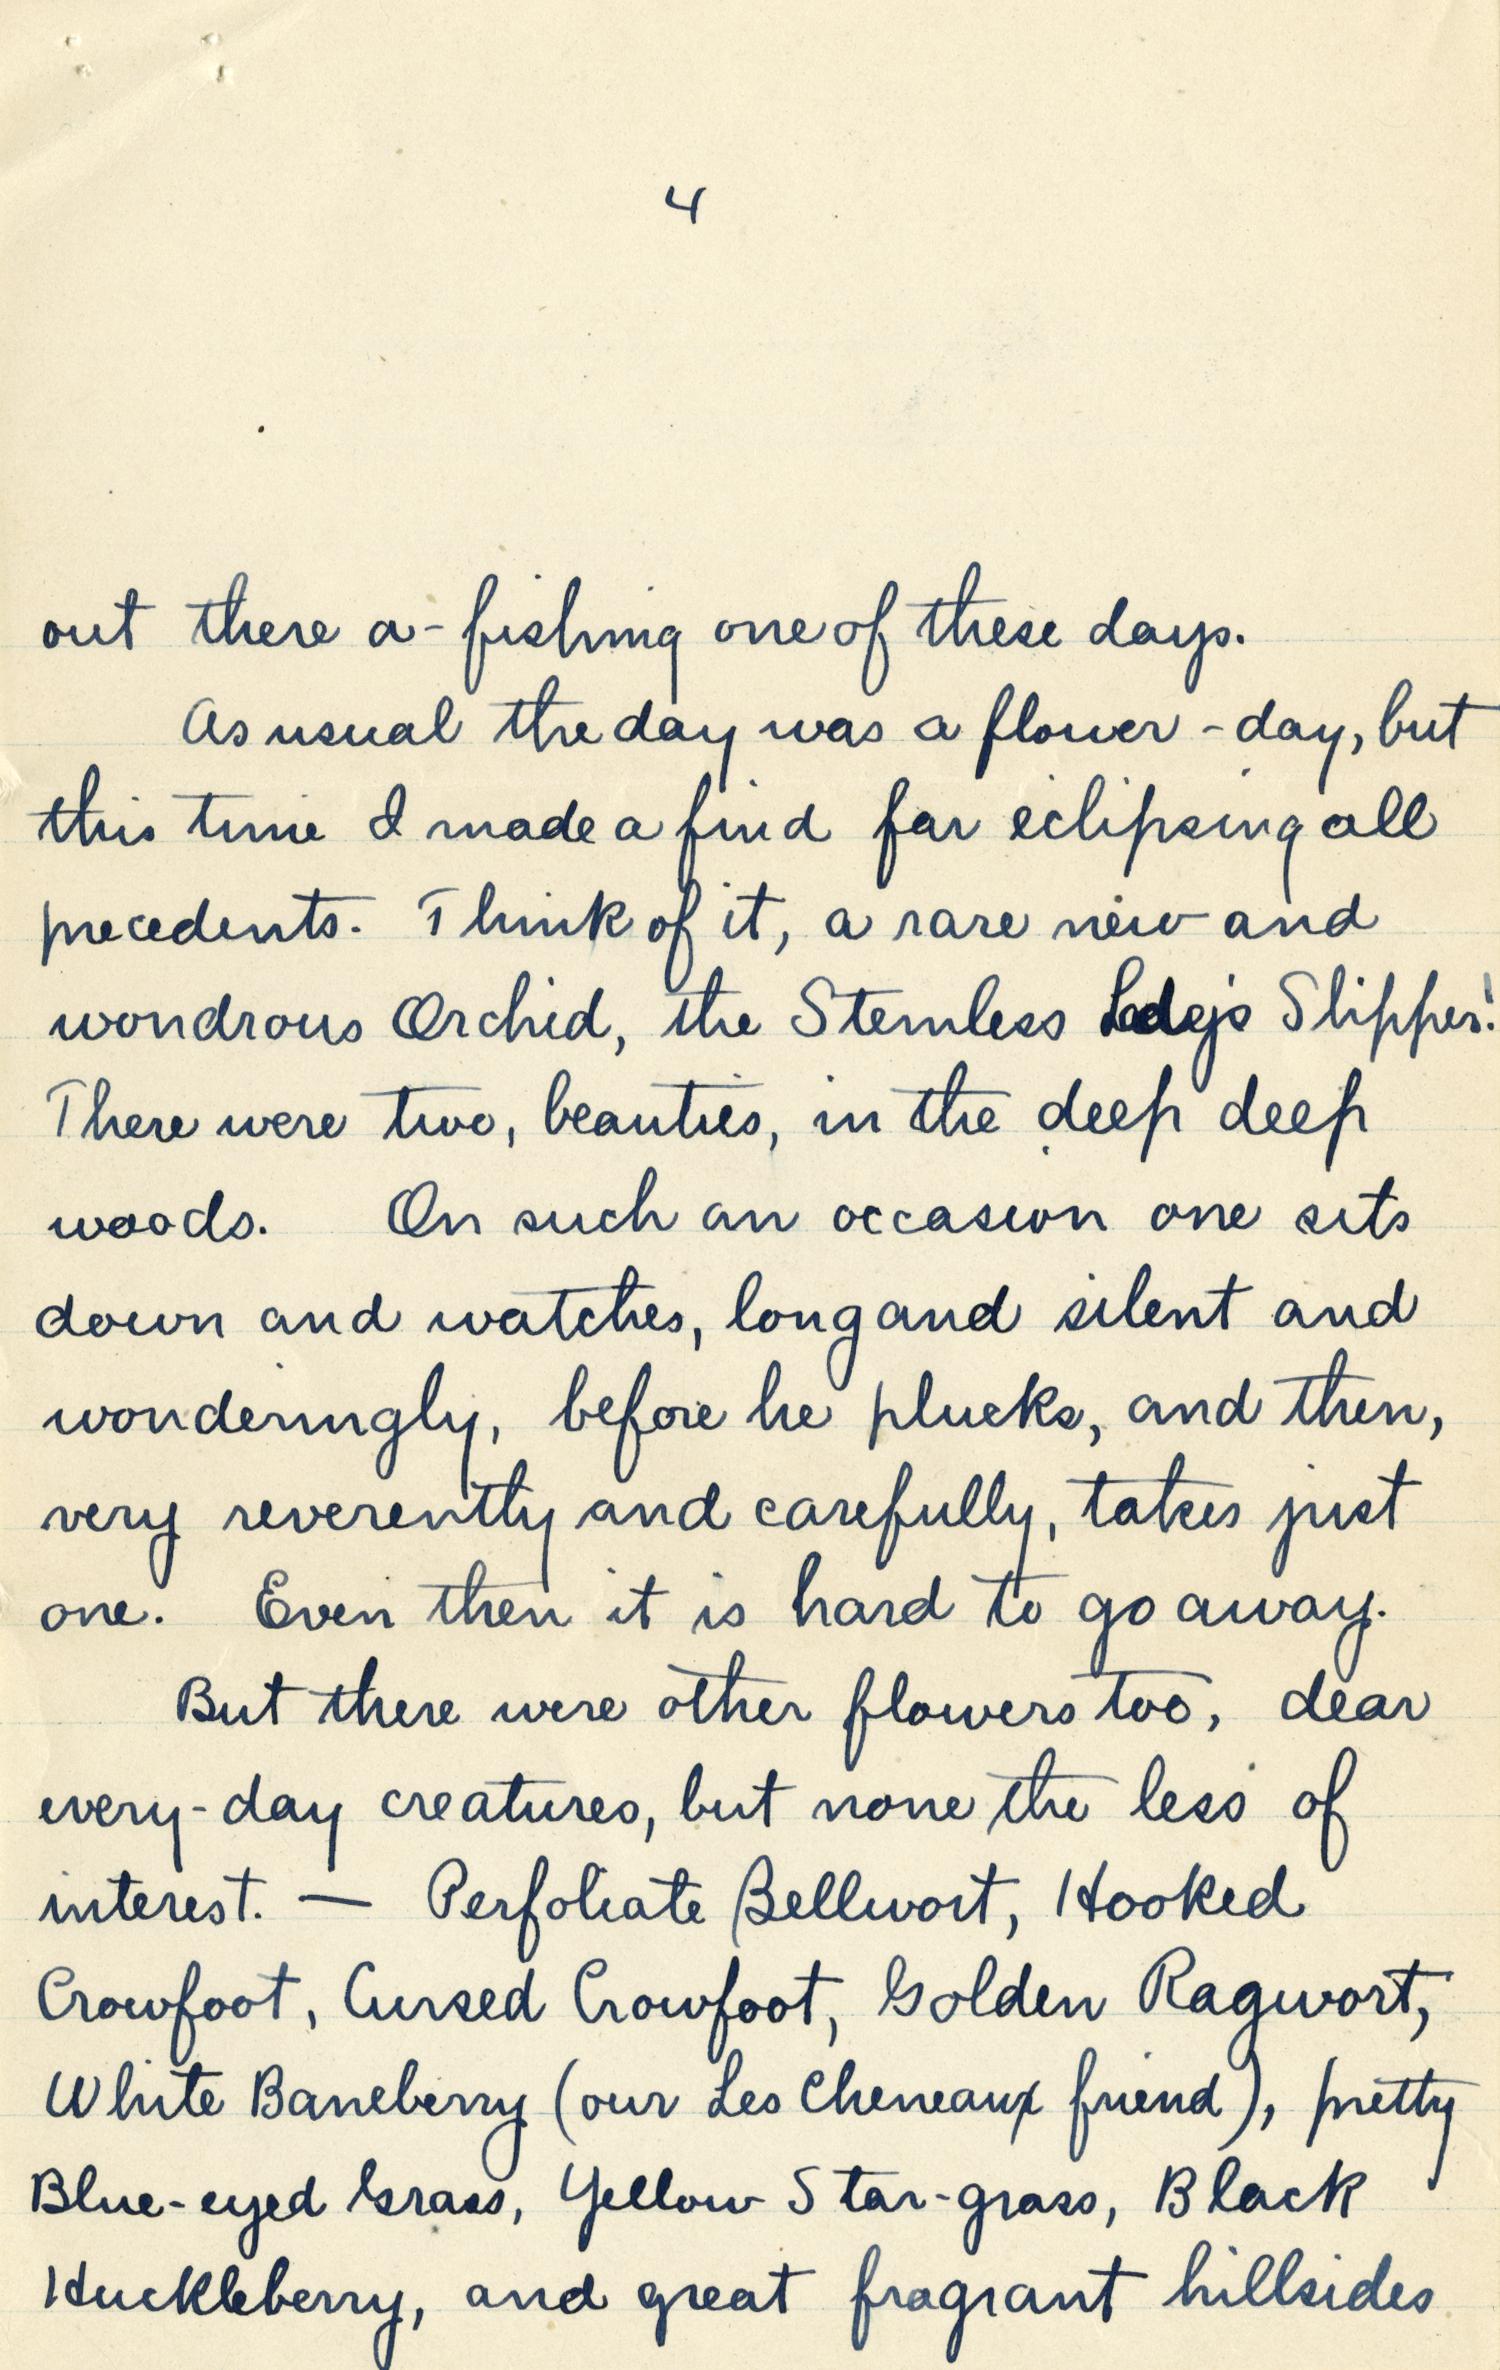 4
out there a-fishing one of these days.
As usual the day was a flower-day, but
this time I made a find far eclipsing all
precedents. Think of it, a rare new and
wondrous Orchid, the Stemless Lady's Slipper!
There were two, beauties, in the deep deep
woods. On such an occasion one sits
down and watches, long and silent and
wonderingly, before he plucks, and then,
very reverently and carefully, takes just
one. Even then it is hard to go away.
But there were other flowers too, dear
every-day creatures, but none the less of
interest. — Perfoliate Bellwort, Hooked
Crowfoot, Cursed Crowfoot, Golden Ragwort,
White Baneberry (our Les Cheneaux friend), pretty
Blue-eyed Grass, Yellow Star-grass, Black
Huckleberry, and great fragrant hillsides